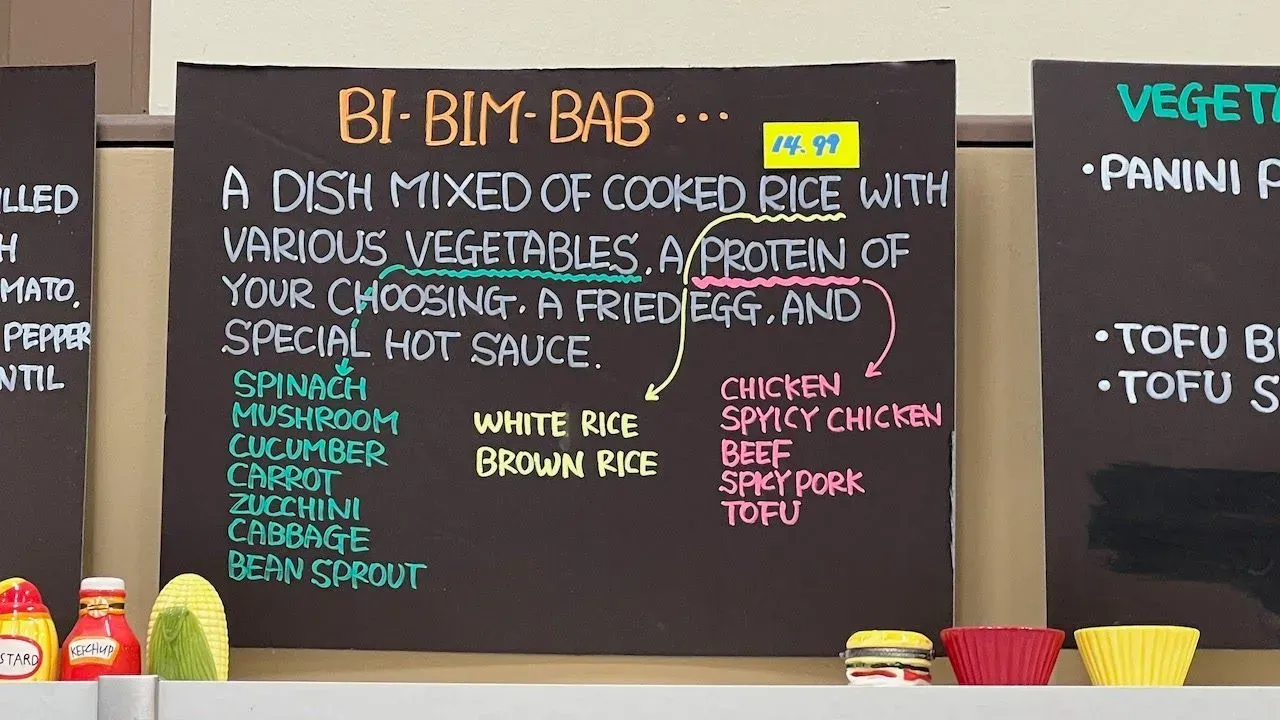 LLED
H
MATO.
PEPPER
NTIL
BI-BIM-BAB ...
14.99
A DISH MIXED OF COOKED RICE WITH
VARIOUS VEGETABLES. A PROTEIN OF
YOUR CHOOSING. A FRIED EGG, AND
SPECIAL HOT SAUCE.
SPINACH
MUSHROOM
CUCUMBER
CARROT
ZUCCHINI
CABBAGE
BEAN SPROUT
WHITE RICE
BROWN RICE
CHICKEN
SPYICY CHICKEN
BEEF
SPICY PORK
TOFU
VEGETA
•PANINI P
•TOFU B
•TOFU S
STARD
KETCHUP